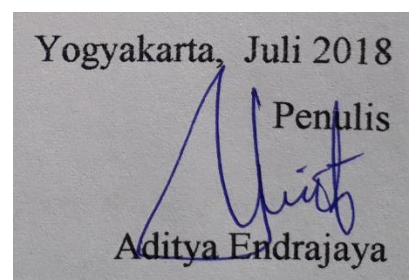 Yogyakarta, Juli 2018
Penulis
Aditya Endrajaya